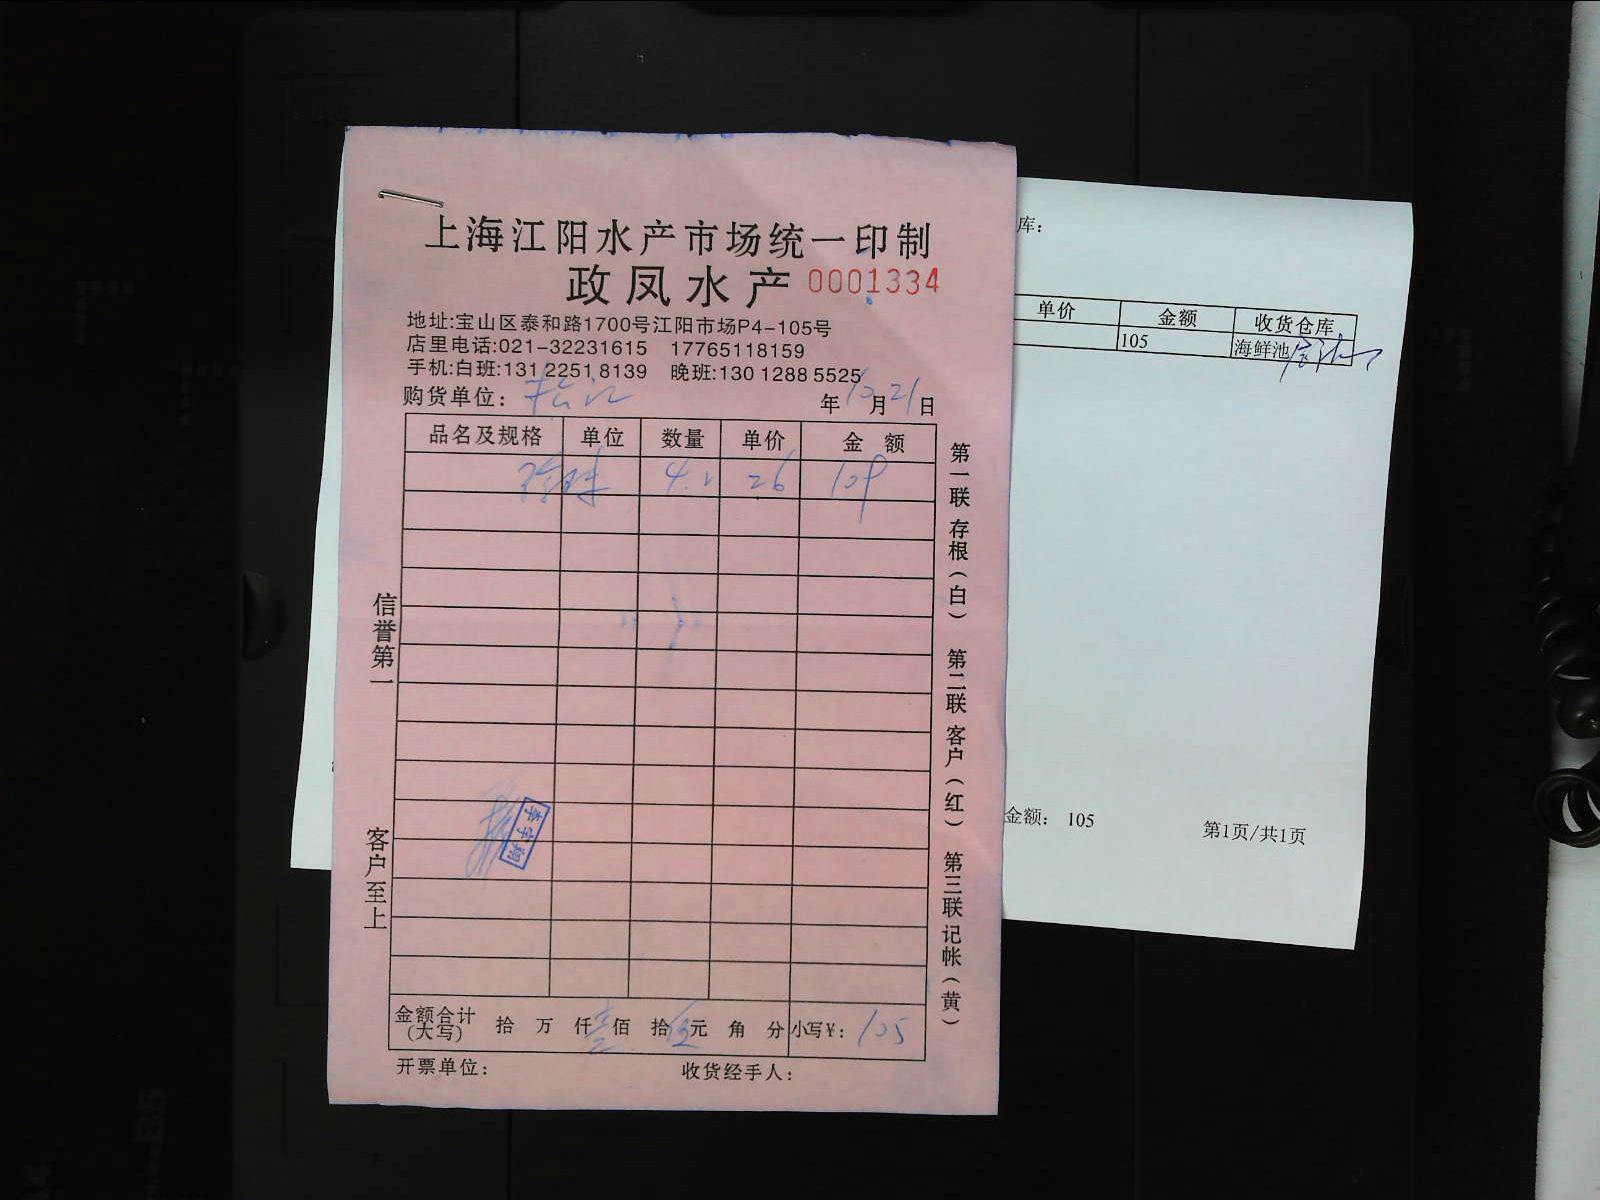 上海江阳水产市场统一印制
政凤水产 0001334
地址:宝山区泰和路1700号江阳市场P4-105号
店里电话:021-32231615 17765118159
手机:白班:131 2251 8139 晚班:130 1288 5525
购货单位: 松江 年10月21日
品名及规格 单位 数量 单价 金 额
4.2 26 109
第一联 存根(白) 第二联 客户(红) 第三联 记帐(黄)
信誉第一
客户至上
李宇翔
金额合计(大写) 拾 万 仟壹佰 拾伍元 角 分 小写¥: 105
开票单位: 收货经手人:
库:
单价 金额 收货仓库
105 海鲜池
金额: 105
第1页/共1页
B5